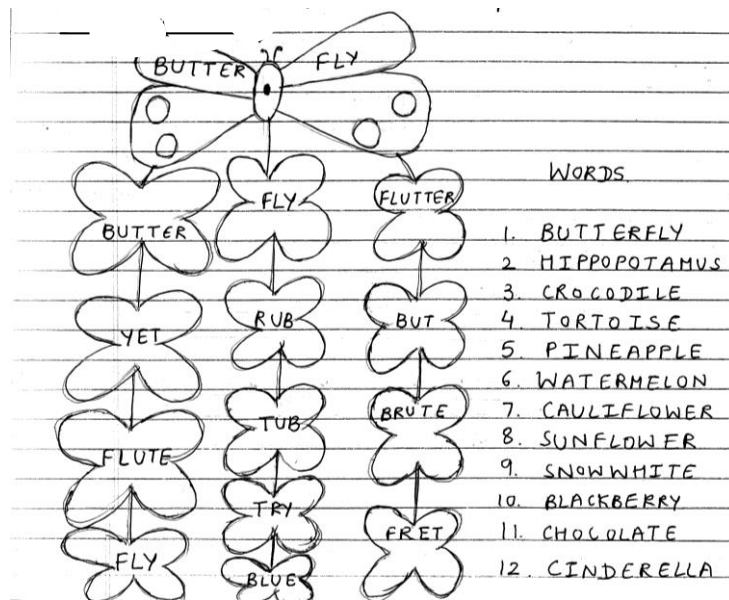 BUTTER FLY
BUTTER FLY FLUTTER
YET RUB BUT
FLUTE TUB BRUTE
FLY TRY FRET
BLUE
WORDS
1. BUTTERFLY
2 HIPPOPOTAMUS
3. CROCODILE
4. TORTOISE
5. PINEAPPLE
6. WATERMELON
7. CAULIFLOWER
8. SUNFLOWER
9. SNOWWHITE
10. BLACKBERRY
11. CHOCOLATE
12. CINDERELLA